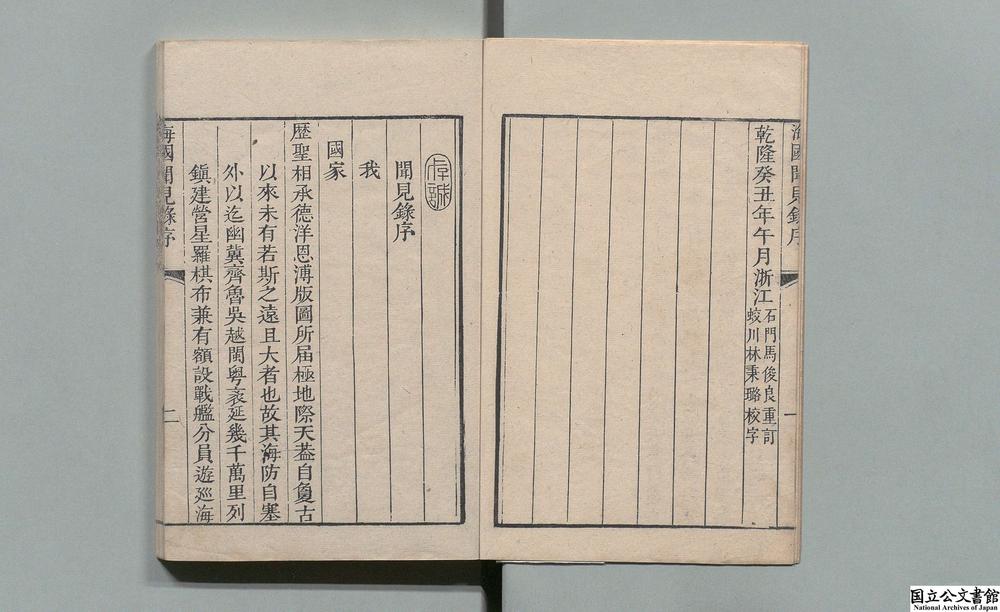 海國聞見錄序
乾隆癸丑年午月浙江石門馬俊良重訂
蛟川林秉璐校字
一
聞見錄序
我
國家
歷聖相承德洋恩溥版圖所届極地際天葢自夐古
以來未有若斯之遠且大者也故其海防自塞
外以迄幽冀齊魯吳越閩粤袤延幾千萬里列
鎭建營星羅棋布兼有額設戰艦分員遊廵海
海國聞見錄序
二
国立公文書館
National Archives of Japan